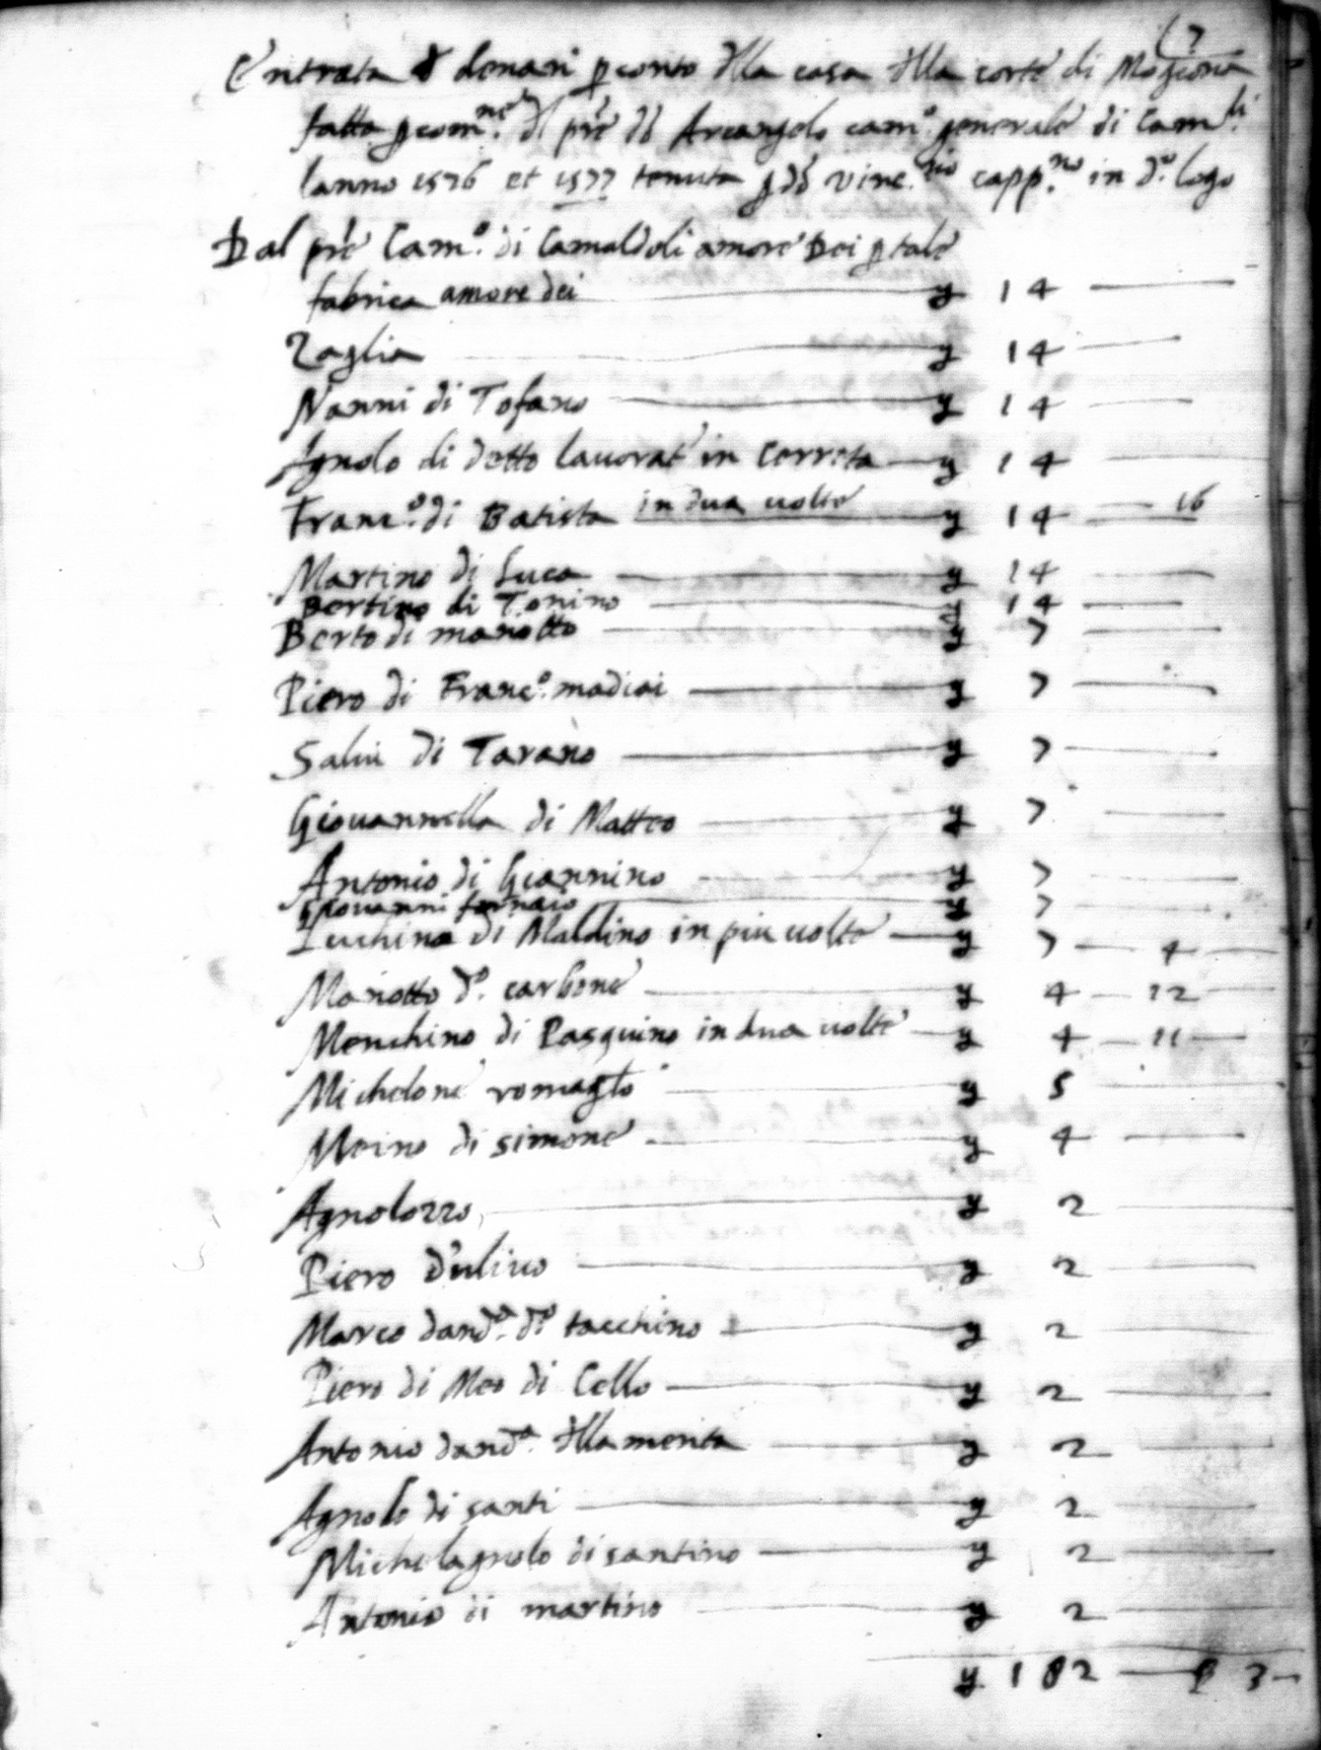 Entrata d denari p conto dlla casa dlla corte di Mogiona
fatta p com.ne dl pre dō Arcangelo cam.o generale di Cam.li
lanno 1576 et 1577 tenuta p dō Vinc.tio capp.no in d.o logo
Dal pre Cam.o di Camaldoli amore Dei p tale
fabrica amore dei y 14
Zaglia y 14
Nanni di Tofano y 14
Agnolo di detto lavorat in Cerreta y 14
Franc.o di Batista in dua volte y 14 16
Martino di Luca y 14
Bertino di Tonino y 14
Berto di mariotto y 7
Piero di Franc.o madiai y 7
Salvi di Tarano y 7
Giovannella di Matteo y 7
Antonio di Giannino y 7
Giovanni fornaio y 7
Luchino di Maldino in piu volte y 7 4
Mariotto d.o carbone y 4 12
Menchino di Pasquino in dua volte y 4 11
Michelone romag.lo y 5
Meino di simone y 4
Agnolozzo y 2
Piero d'ulivo y 2
Marco dand.a d.o tacchino y 2
Piero di Meo di Cello y 2
Antonio dand.a dlla menta y 2
Agnolo di santi y 2
Michelagnolo di santino y 2
Antonio di martino y 2
y 182 3